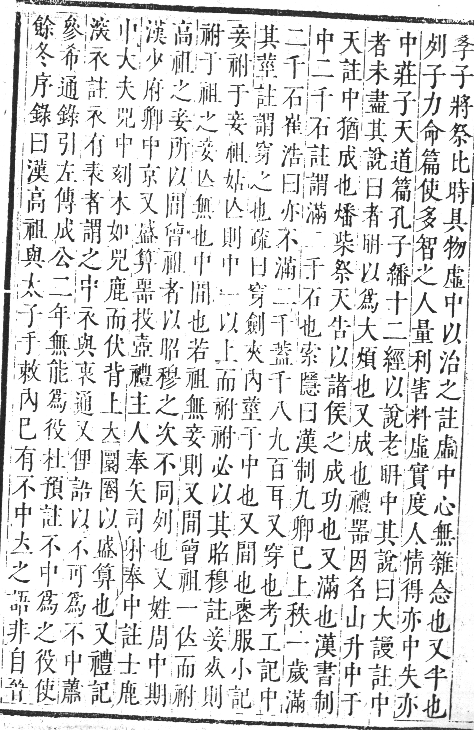 孝子將祭比時具物虛中以治之註虛中心無雜念也又半也
列子力命篇使多智之人量利害料虛實度人情得亦中失亦
中莊子天道篇孔子繙十二經以說老聃中其說曰大謾註中
者未盡其說曰者聃以爲大煩也又成也禮器因名山升中于
天註中猶成也燔柴祭天告以諸侯之成功也又滿也漢書制
中二千石註謂滿二千石也索隱曰漢制九卿已上秩一歲滿
二千石崔浩曰亦不滿二千蓋千八九百耳又穿也考工記中
其莖註謂穿之也疏曰穿劍夾內莖于中也又間也䘮服小記
妾祔于妾祖姑亡則中一以上而祔祔必以其昭穆註妾死則
祔于祖之妾亡無也中間也若祖無妾則又間曾祖一位而祔
高祖之妾所以間曾祖者以昭穆之次不同列也又姓周中期
漢少府卿中京又盛算器投壺禮主人奉矢司射奉中註士鹿
中大夫兕中刻木如兕鹿而伏背上立圜圈以盛算也又禮記
深衣註衣有表者謂之中衣與衷通又俚語以不可爲不中蕭
參希通錄引左傳成公二年無能爲役杜預註不中爲之役使
餘冬序錄曰漢高祖與太子手敕內已有不中立之語非自晉